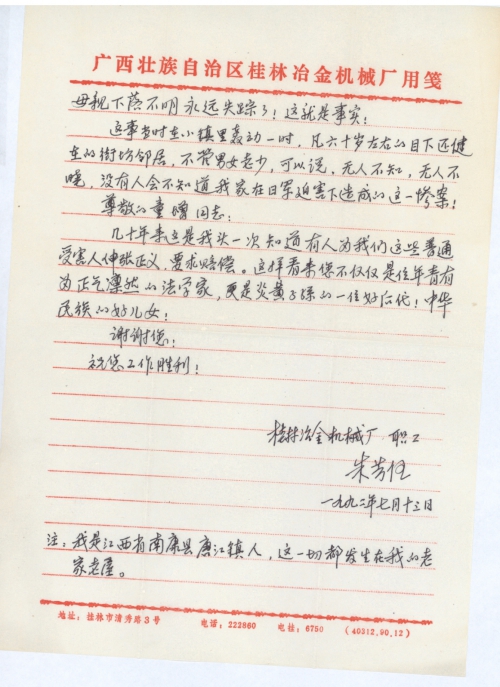 广西壮族自治区桂林冶金机械厂用笺
母亲下落不明永远失踪了！这就是事实！
这事当时在小镇里轰动一时，凡六十岁左右的目下还健
在的街坊邻居，不管男女老少，可以说，无人不知，无人不
晓，没有人会不知道我家在日军迫害下造成的这一惨案！
尊敬的童增同志：
几十年来这是我头一次知道有人为我们这些普通
受害人伸张正义，要求赔偿。这样看来您不仅仅是位年青有
为正气凛然的法学家，更是炎黄子孙的一位好后代！中华
民族的好儿女！
谢谢您！
祝您工作胜利！
桂林冶金机械厂 职工
朱芳
一九九二年七月十三日
注：我是江西省南康县唐江镇人，这一切都发生在我的老
家老屋。
地址：桂林市清秀路3号 电话：222860 电挂：6750 (40312.90.12)